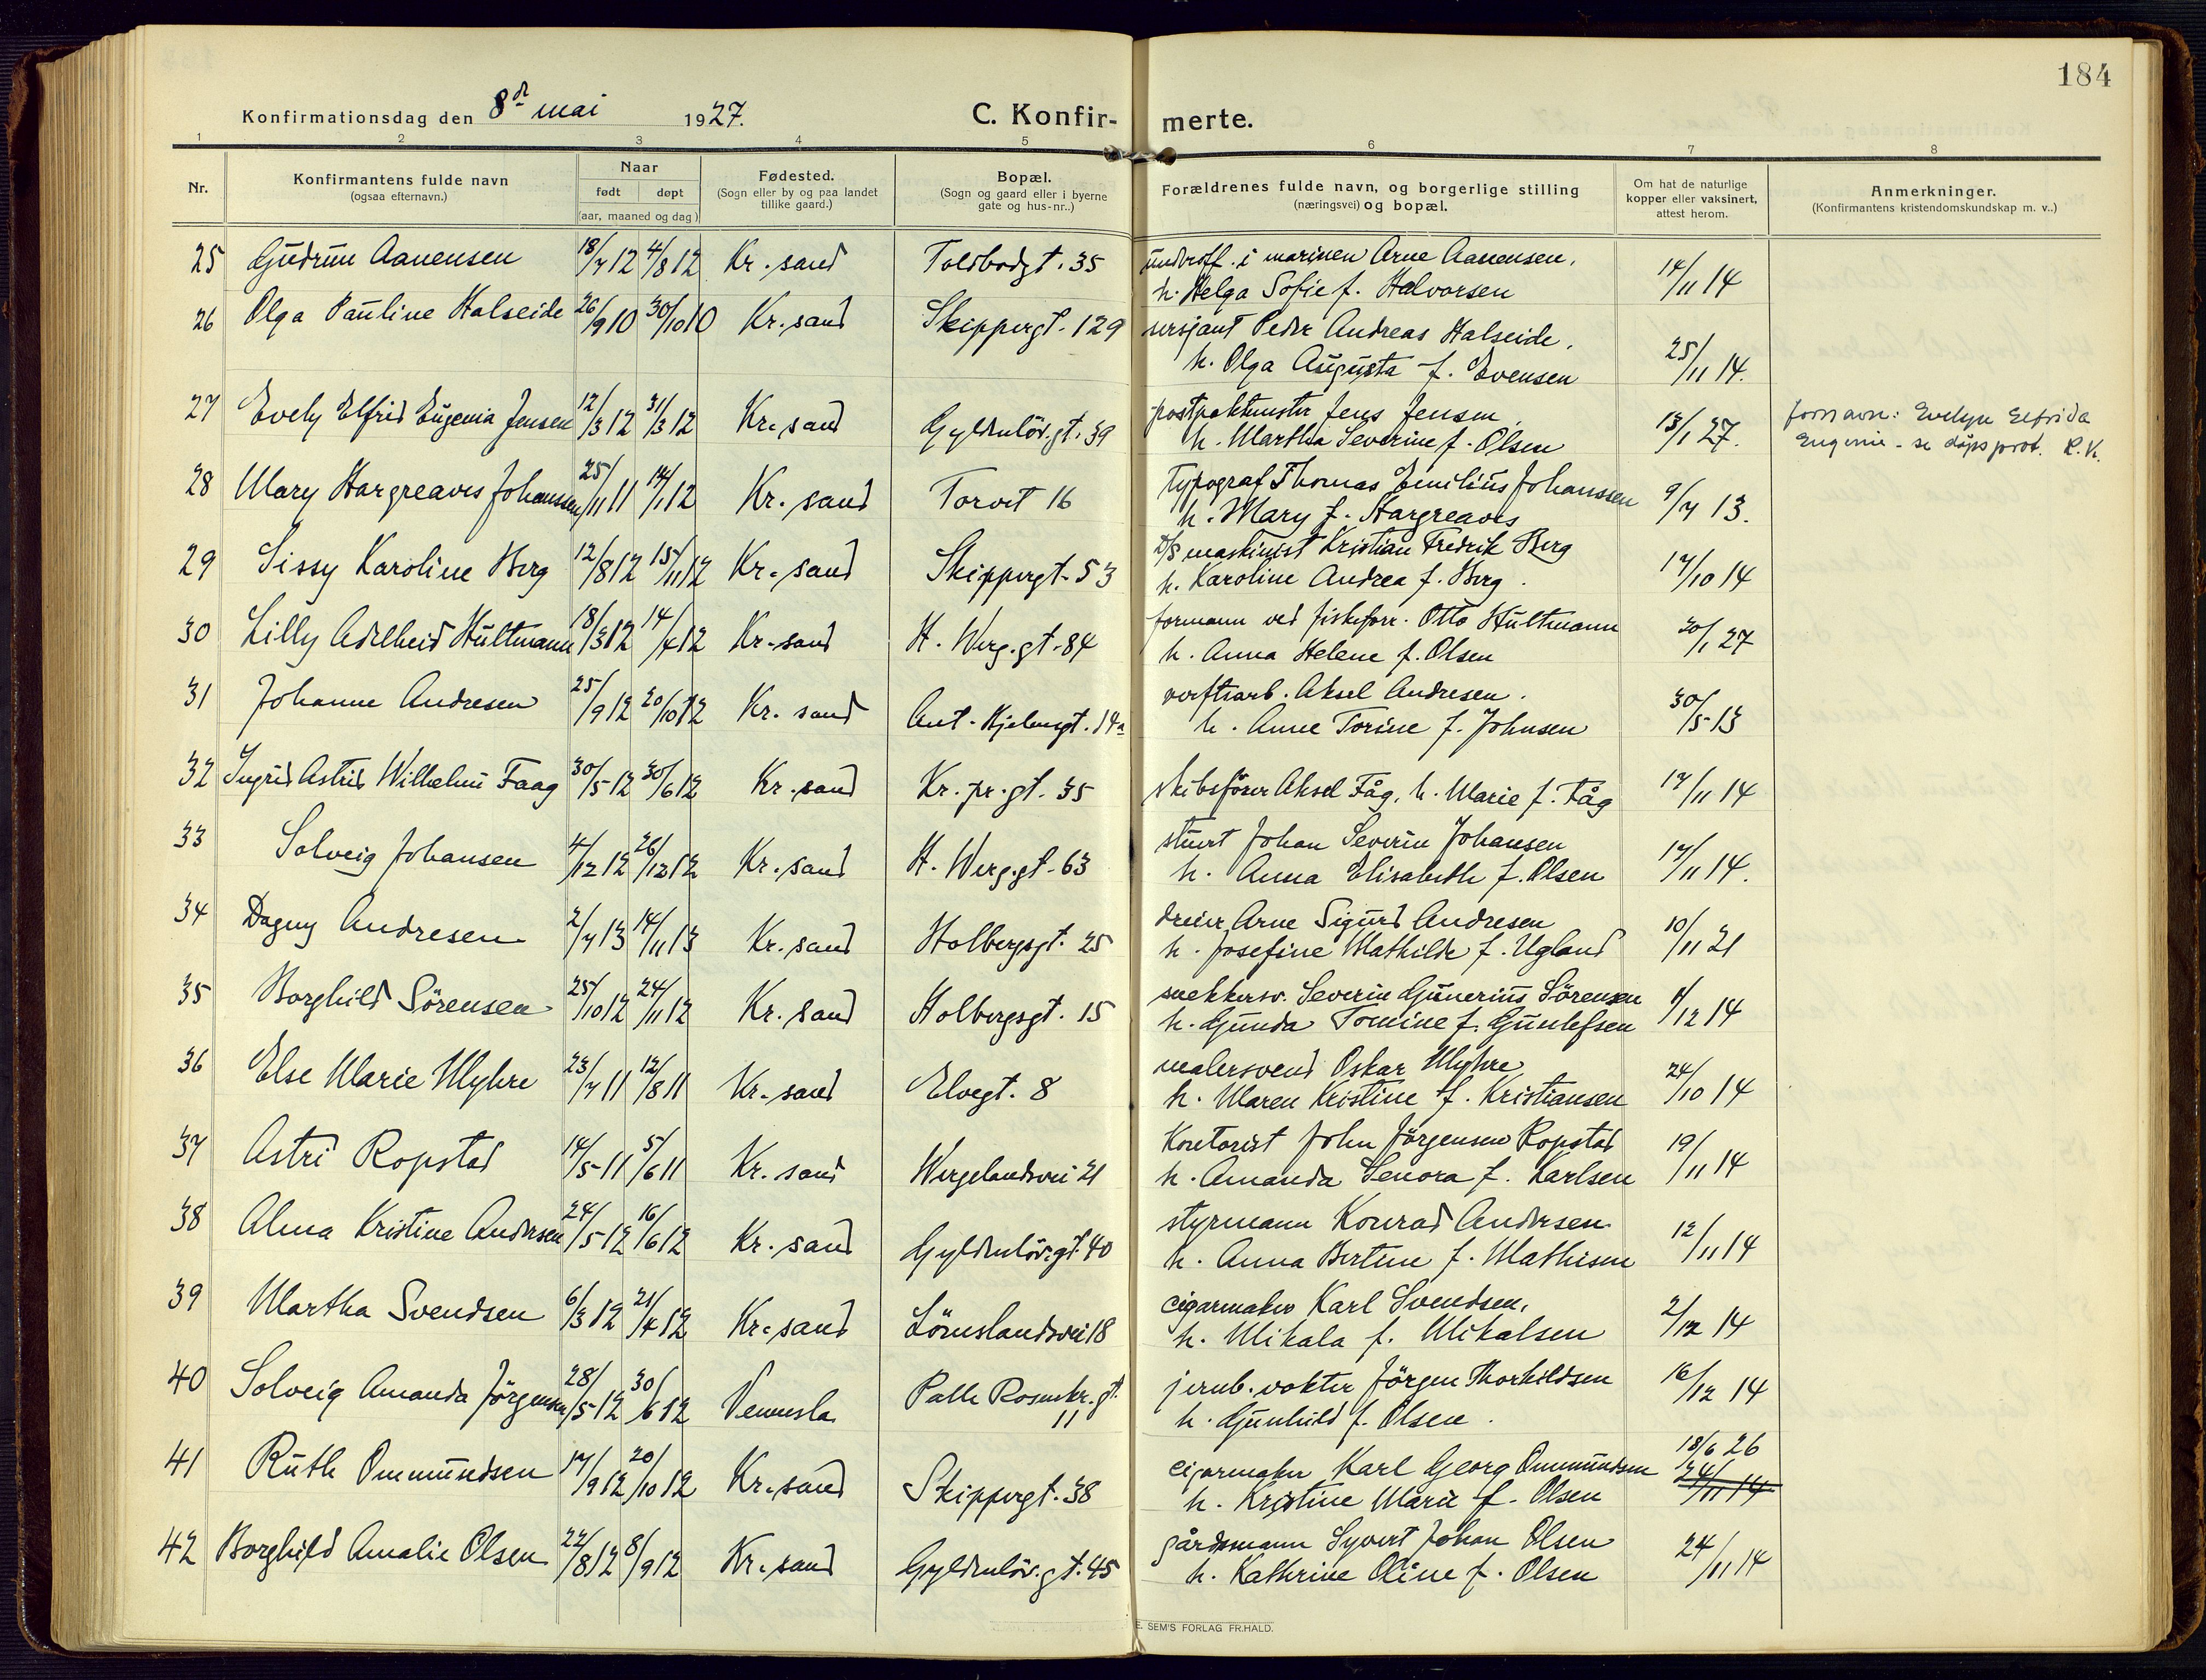 184
Konfirmationsdag den 8de mai 1927. C. Konfir- merte.
1 2 3 4 5 6 7 8
Nr. Konfirmantens fulde navn (ogsaa efternavn.) Naar født døpt (aar, maaned og dag) Fødested. (Sogn eller by og paa landet tillike gaard.) Bopæl. (Sogn og gaard eller i byerne gate og hus-nr..) Forældrenes fulde navn, og borgerlige stilling (næringsvei) og bopæl. Om hat de naturlige kopper eller vaksinert, attest herom. Anmerkninger. (Konfirmantens kristendomskundskap m. v..)
25 Gudrun Aanensen 18/7 12 4/8 12 Kr.sand Toldbodgt. 35 underoff. i marinen Arne Aanensen, 14/11 14
h. Helga Sofie f. Halvorsen
26 Olga Pauline Halseide 26/9 10 30/10 10 Kr.sand Skippergt. 129 sersjant Peder Andreas Halseide, 25/11 14.
h. Olga Augusta f. Evensen
27 Evely Elfrid Eugenia Jensen 12/3 12 31/3 12 Kr.sand Gyldenløv.gt. 39 postpakmester Jens Jensen, 13/1 27. fornavn: Evelyn Elfrida
h. Martha Severine f. Olsen Eugenie - se dåpsprot. R.K.
28 Mary Hargreaves Johanssen 25/11 11 14/1 12 Kr.sand Torvet 16 Typograf Thomas Emilius Johanssen 9/7 13.
h. Mary f. Hargreaves
29 Sissy Karoline Berg 12/8 12 15/11 12 Kr.sand Skippergt. 53 D/S maskinist Kristian Fredrik Berg 17/10 14
h. Karoline Andrea f. Berg.
30 Lilly Adelheid Hultmann 18/3 12 14/4 12 Kr.sand H. Werg.gt. 84 formann ved fiskeforr. Otto Hultmann 20/1 27
h. Anna Helene f. Olsen
31 Johanne Andresen 25/9 12 20/10 12 Kr.sand Ant. Hjelmsgt. 14a verftsarb. Aksel Andresen. 30/5 13
h. Anne Torine f. Johnsen
32 Ingrid Astrid Wilhelmi Faag 30/5 12 30/6 12 Kr.sand Kr.pr.gt. 35 skibsfører Aksel Fåg, h. Marie f. Fåg 17/11 14
33 Solveig Johansen 4/12 12 26/12 12 Kr.sand H. Werg.gt. 63 stuert Johan Severin Johansen 17/11 14.
h. Anna Elisabeth f. Olsen
34 Dagny Andresen 2/7 13 14/11 13 Kr.sand Holbergsgt. 25 dreier Arne Sigurd Andresen 10/11 21
h. Josefine Mathilde f. Ugland
35 Borghild Sörensen 25/10 12 24/11 12 Kr.sand Holbergsgt. 15 snekkersv. Severin Gunerius Sörensen 1/12 14
h. Gunda Tomine f. Gunlefsen
36 Else Marie Myhre 23/7 11 12/8 11 Kr.sand Elvegt. 8 malersvend Oskar Myhre, 24/10 14
h. Maren Kristine f. Kristiansen
37 Astri Ropstad 14/5 11 5/6 11 Kr.sand Wergelandsvei 21 Kontorist John Jörgensen Ropstad 19/11 14
h. Amanda Lenora f. Karlsen
38 Alma Kristine Andersen 24/5 12 16/6 12 Kr.sand Gyldenlöv.gt. 40 styrmann Konrad Andersen 12/11 14
h. Anna Bertine f. Mathisen
39 Martha Svendsen 6/3 12 21/4 12 Kr.sand Lömslandsvei 18 cigarmaker Karl Svendsen, 2/12 14
h. Mikala f. Mikalsen
40 Solveig Amanda Jörgensen 28/5 12 30/6 12 Vennesla Palle Rosenkr.gt. 11 jernb.vokter Jörgen Thorkildsen 16/12 14
h. Gunhild f. Olsen.
41 Ruth Ommundsen 17/9 12 20/10 12 Kr.sand Skippergt. 38 cigarmaker Karl Georg Ommundsen 18/6 26
h. Kristine Marie f. Olsen 24/11 14
42 Borghild Amalie Olsen 22/8 12 8/9 12 Kr.sand Gyldenlöv.gt. 45 gårdsmann Syvert Johan Olsen 24/11 14
h. Kathrine Oline f. Olsen
E. SEM'S FORLAG FR.HALD.